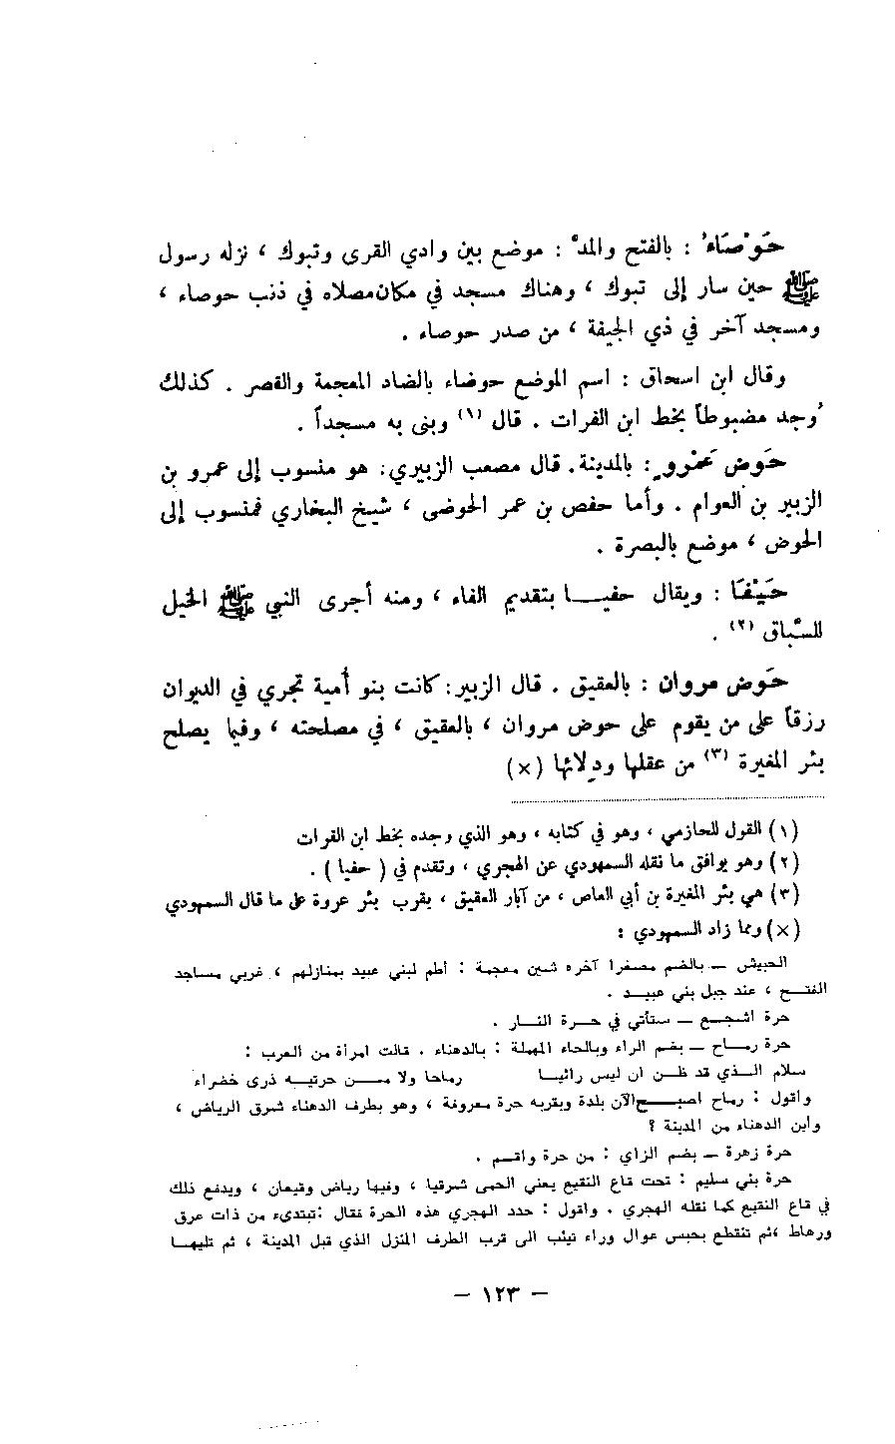 حَوْصَاءُ : بالفتح والمدّ : موضع بين وادي القرى وتبوك ، نزله رسول
ﷺ حين سار إلى تبوك ، وهناك مسجد في مكان مصلاه في ذنب حوصاء ،
ومسجد آخر في ذي الجيفة ، من صدر حوصاء .
وقال ابن اسحاق : اسم الموضع حوضاء بالضاد المعجمة والقصر . كذلك
وُجد مضبوطاً بخط ابن الفرات . قال (١) وبنى به مسجداً .
حَوض عَمْروٍ : بالمدينة . قال مصعب الزبيري : هو منسوب إلى عمرو بن
الزبير بن العوام . وأما حفص بن عمر الحوضى ، شيخ البخاري فمنسوب إلى
الحوض ، موضع بالبصرة .
حَيْفَا : ويقال حفيــا بتقديم الفاء ، ومنه أجرى النبي ﷺ الخيل
للسّباق (٢) .
حَوض مروان : بالعقيق . قال الزبير : كانت بنو أُمية تجري في الديوان
رزقاً على من يقوم على حوض مروان ، بالعقيق ، في مصلحته ، وفيما يصلح
بئر المغيرة (٣) من عقلها ودِلائها (×)
(١) القول للحازمي ، وهو في كتابه ، وهو الذي وجده بخط ابن الفرات
(٢) وهو يوافق ما نقله السمهودي عن الهجري ، وتقدم في ( حفيا ) .
(٣) هي بئر المغيرة بن أبي العاص ، من آبار العقيق ، يقرب بئر عروة على ما قال السمهودي
(×) ومما زاد السمهودي :
الحبيش – بالضم مصغرا آخره شين معجمة : أطم لبني عبيد بمنازلهم ، غربي مساجد
الفتــح ، عند جبل بني عبيــد .
حرة اشجــع – ستأتي في حــرة النــار .
حرة رمــاح – بضم الراء وبالحاء المهملة : بالدهناء . قالت امرأة من العرب :
سلام الــذي قد ظــن ان ليس رائيــا رماحا ولا مــن حرتيــه ذرى خضراء
واقول : رماح اصبــح الآن بلدة وبقربه حرة معروفة ، وهو بطرف الدهناء شرق الرياض ،
وأين الدهناء من المدينة ؟
حرة زهرة – بضم الزاي : من حرة واقــم .
حرة بني سليم : تحت قاع النقيع يعني الحمى شرقيا ، وفيها رياض وقيعان ، ويدفع ذلك
في قاع النقيع كما نقله الهجري . واقول : حدد الهجري هذه الحرة فقال : تبتدىء من ذات عرق
ورهاط ، ثم تنقطع بحبس عوال وراء تيئب الى قرب الطرف المنزل الذي قبل المدينة ، ثم تليهــا
– ١٢٣ –